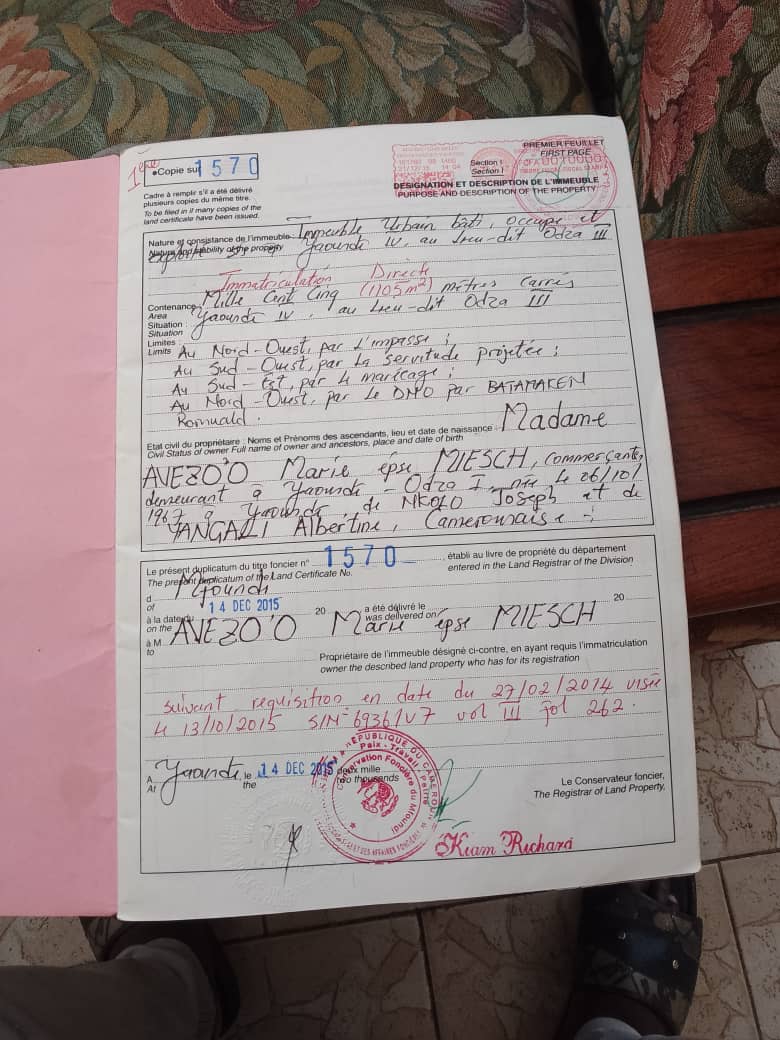 1ère
Copie sur 1570
Cadre à remplir s'il a été délivré
plusieurs copies du même titre.
To be filed in if many copies of the
land certificate have been issued.
PREMIER FEUILLET
FIRST PAGE
Section I
Section I
DÉSIGNATION ET DESCRIPTION DE L'IMMEUBLE
PURPOSE AND DESCRIPTION OF THE PROPERTY
Nature et consistance de l'immeuble Immeuble Urbain bâti, occupé et
Nature and of the property
exploité Yaoundé IV, au lieu-dit Odza III
Immatriculation Directe
Contenance Mille Cent Cinq (1105m²) mètres Carrés
Area
Situation : Yaoundé IV, au lieu-dit Odza III
Situation
Limites :
Limits
Au Nord-Ouest, par l'impasse ;
Au Sud-Ouest, par la servitude projetée ;
Au Sud-Est, par le marécage ;
Au Nord-Ouest, par le DNO par BATAMAKEN
Romuald.
Etat civil du propriétaire : Noms et Prénoms des ascendants, lieu et date de naissance : Madame
Civil Status of owner Full name of owner and ancestors, place and date of birth
AVEZO'O Marie épse MIESCH, Commerçante,
demeurant à Yaoundé - Odza I, née le 26/10/
1967 à Yaoundé, de NKOLO Joseph et de
Albertine, Camerounaise.
Le présent duplicatum du titre foncier n° 1570, établi au livre de propriété du département
The present duplicatum of the Land Certificate No. entered in the Land Registrar of the Division
d Mfoundi
of
à la date du 14 DEC 2015 20 a été délivré le 20
on the was delivered on
à M AVEZO'O Marie épse MIESCH
to
Propriétaire de l'immeuble désigné ci-contre, en ayant requis l'immatriculation
owner the described land property who has for its registration
suivant requisition en date du 27/02/2014 visée
le 13/10/2015 S/N° 6936/V7 vol III fol 262.
A Yaoundé, le 14 DEC 2015 deux mille
At the two thousands
REPUBLIQUE DU CAMEROUN
Paix - Travail - Patrie
Conservation Foncière du Mfoundi
Le Conservateur foncier,
The Registrar of Land Property,
Kiam Richard